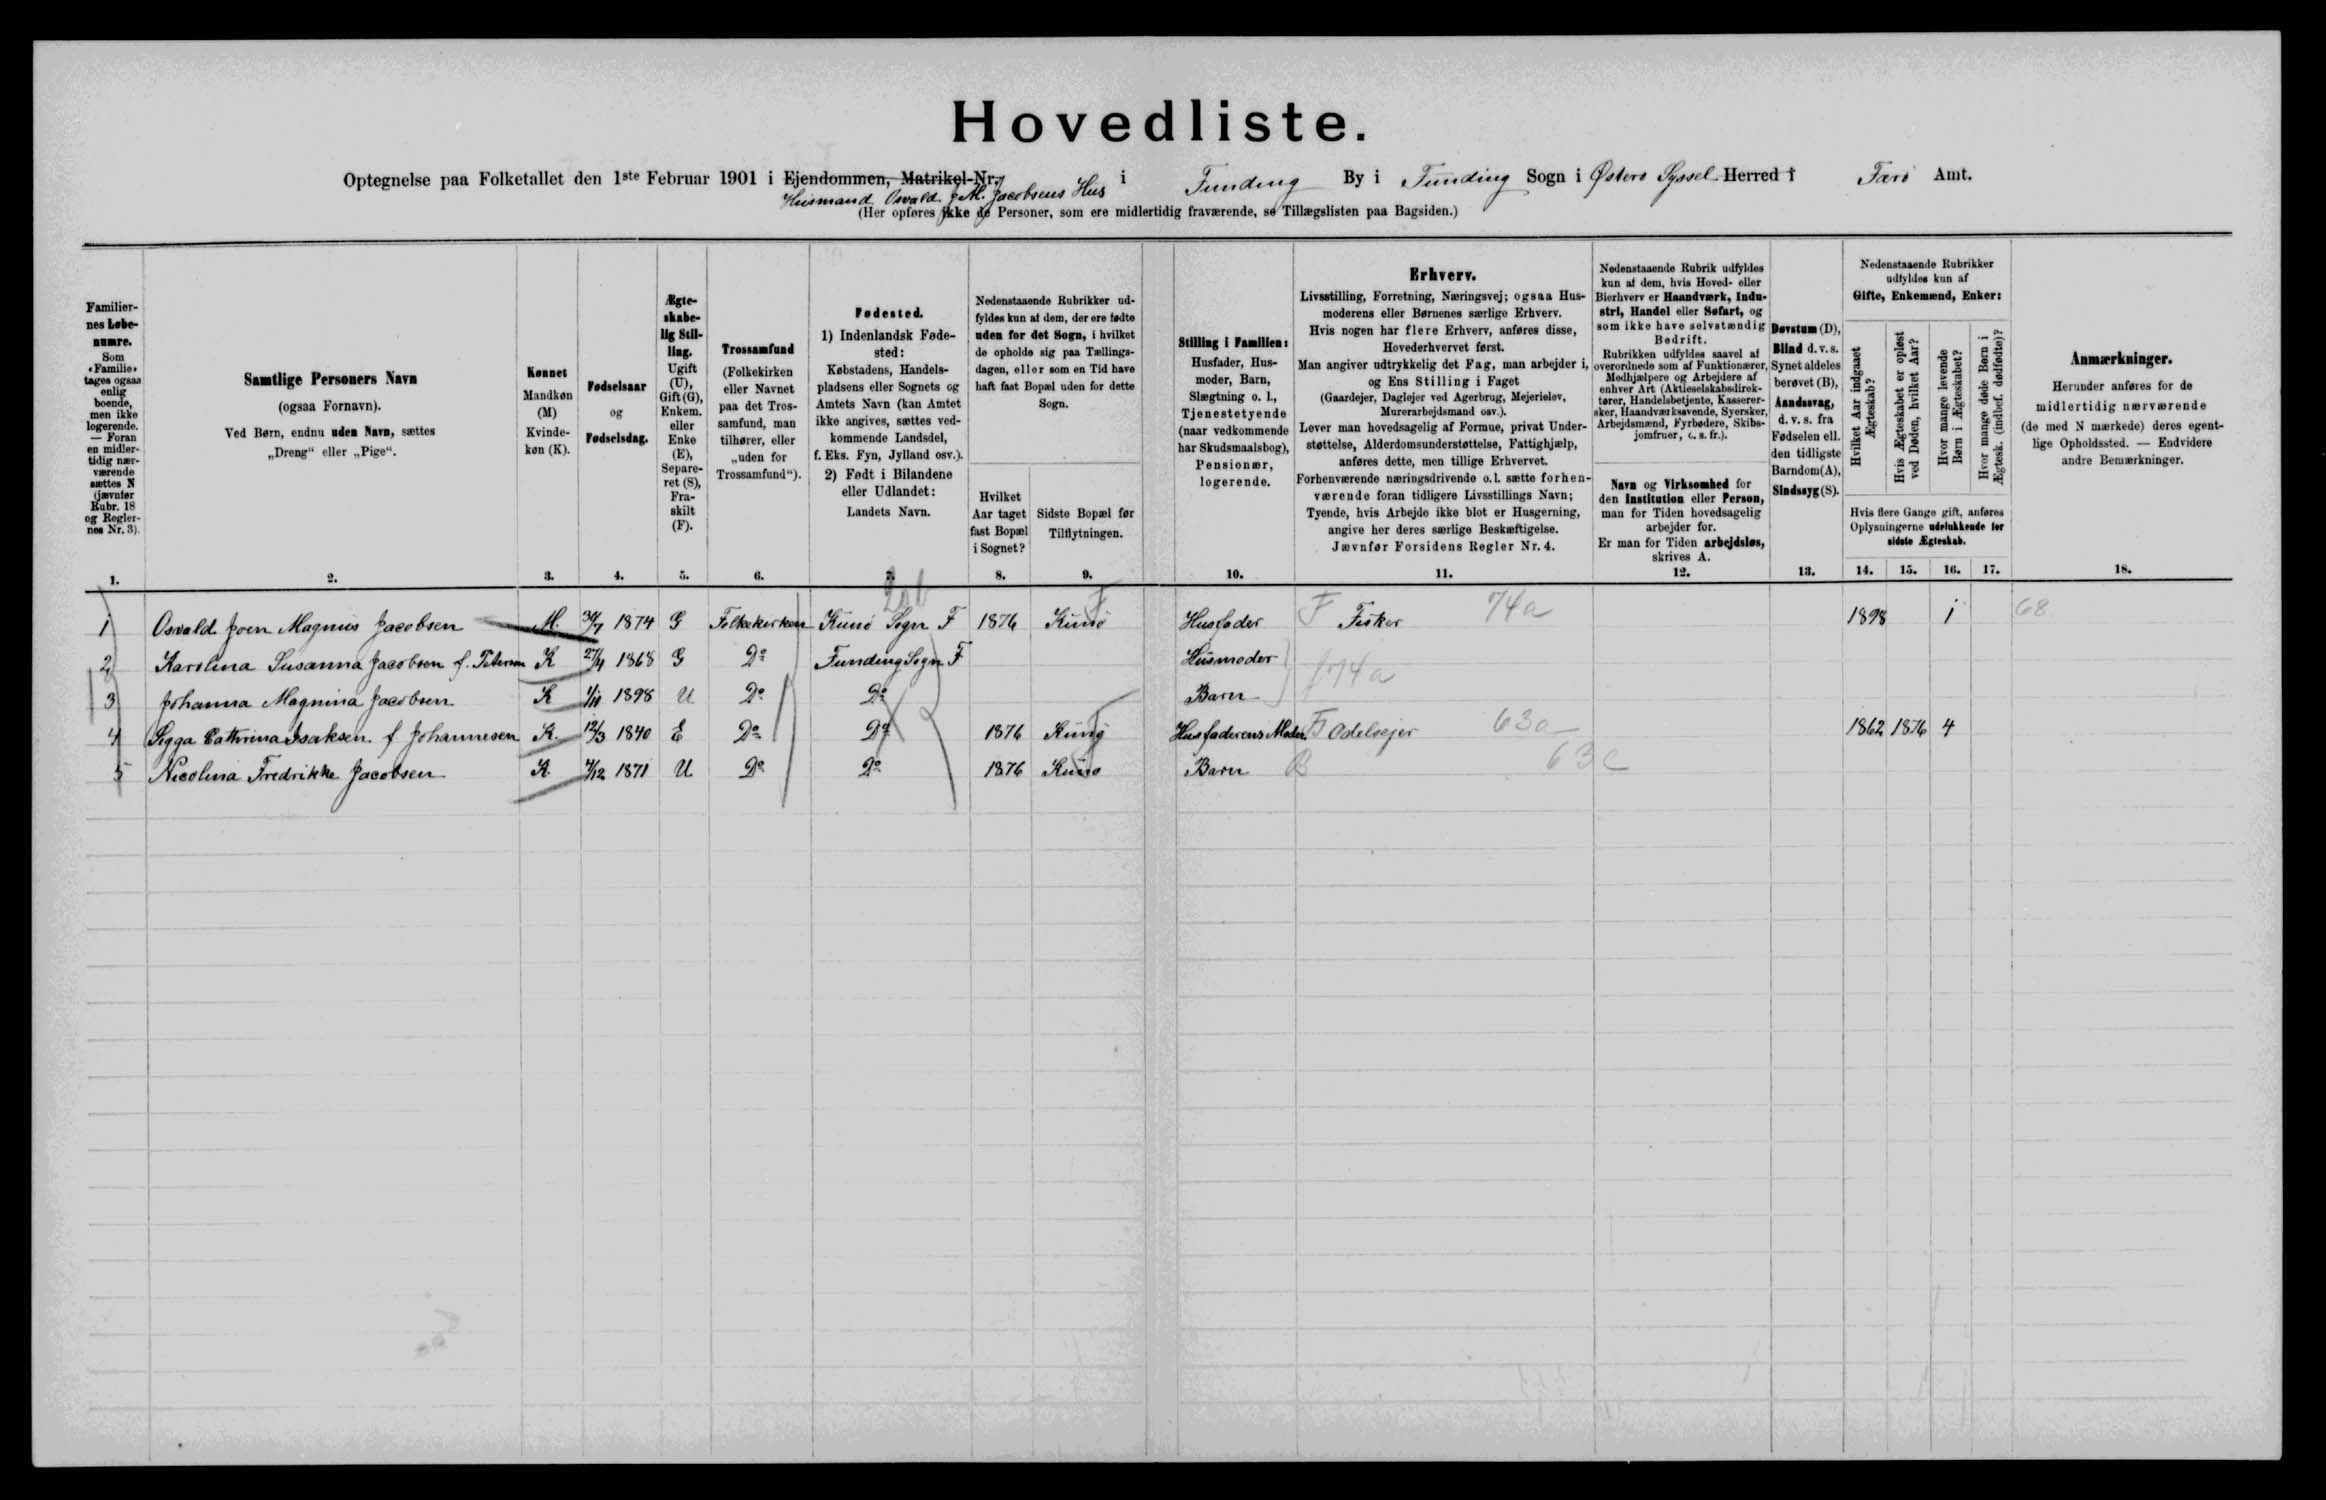 Hovedliste.
Optegnelse paa Folketallet den 1ste Februar 1901 i Ejendommen, Matrikel-Nr. i Funding By i Funding Sogn i Østerø Syssel Herred i Færø Amt.
Husmand Osvald J. M. Jacobsens Hus
(Her opføres ikke de Personer, som ere midlertidig fraværende, se Tillægslisten paa Bagsiden.)
Familiernes Løbenumre.
Som «Familie» tages ogsaa enlig boende, men ikke logerende. — Foran en midlertidig nærværende sættes N (jævnfør Rubr. 18 og Reglernes Nr. 3).
Samtlige Personers Navn
(ogsaa Fornavn).
Ved Børn, endnu uden Navn, sættes
„Dreng“ eller „Pige“.
Kønnet
Mandkøn (M)
Kvindekøn (K).
Fødselsaar
og
Fødselsdag.
Ægteskabelig Stilling.
Ugift (U), Gift (G), Enkem. eller Enke (E), Separeret (S), Fraskilt (F).
Trossamfund
(Folkekirken eller Navnet paa det Trossamfund, man tilhører, eller „uden for Trossamfund“).
Fødested.
1) Indenlandsk Fødested:
Købstadens, Handelspladsens eller Sognets og Amtets Navn (kan Amtet ikke angives, sættes vedkommende Landsdel, f. Eks. Fyn, Jylland osv.).
2) Født i Bilandene eller Udlandet:
Landets Navn.
Nedenstaaende Rubrikker udfyldes kun af dem, der ere fødte uden for det Sogn, i hvilket de opholde sig paa Tællingsdagen, eller som en Tid have haft fast Bopæl uden for dette Sogn.
Hvilket Aar taget fast Bopæl i Sognet?
Sidste Bopæl før Tilflytningen.
Stilling i Familien:
Husfader, Husmoder, Barn, Slægtning o. l., Tjenestetyende (naar vedkommende har Skudsmaalsbog), Pensionær, logerende.
Erhverv.
Livsstilling, Forretning, Næringsvej; ogsaa Husmoderens eller Børnenes særlige Erhverv.
Hvis nogen har flere Erhverv, anføres disse, Hovederhvervet først.
Man angiver udtrykkelig det Fag, man arbejder i, og Ens Stilling i Faget
(Gaardejer, Daglejer ved Agerbrug, Mejerielev, Murerarbejdsmand osv.).
Lever man hovedsagelig af Formue, privat Understøttelse, Alderdomsunderstøttelse, Fattighjælp, anføres dette, men tillige Erhvervet.
Forhenværende næringsdrivende o. l. sætte forhenværende foran tidligere Livsstillings Navn;
Tyende, hvis Arbejde ikke blot er Husgerning, angive her deres særlige Beskæftigelse.
Jævnfør Forsidens Regler Nr. 4.
Nedenstaaende Rubrik udfyldes kun af dem, hvis Hoved- eller Bierhverv er Haandværk, Industri, Handel eller Søfart, og som ikke have selvstændig Bedrift.
Rubrikken udfyldes saavel af overordnede som af Funktionærer, Medhjælpere og Arbejdere af enhver Art (Aktieselskabsdirektører, Handelsbetjente, Kasserersker, Haandværkssvende, Syersker, Arbejdsmænd, Fyrbødere, Skibsjomfruer, o. s. fr.).
Navn og Virksomhed for den Institution eller Person, man for Tiden hovedsagelig arbejder for.
Er man for Tiden arbejdsløs, skrives A.
Døvstum (D),
Blind d. v. s. Synet aldeles berøvet (B),
Aandssvag, d. v. s. fra Fødselen ell. den tidligste Barndom (A),
Sindssyg (S).
Nedenstaaende Rubrikker udfyldes kun af
Gifte, Enkemænd, Enker:
Hvilket Aar indgaaet Ægteskab?
Hvis Ægteskabet er opløst ved Døden, hvilket Aar?
Hvor mange levende Børn i Ægteskabet?
Hvor mange døde Børn i Ægtesk. (indbef. dødfødte)?
Hvis flere Gange gift, anføres Oplysningerne udelukkende for sidste Ægteskab.
Anmærkninger.
Herunder anføres for de midlertidig nærværende (de med N mærkede) deres egentlige Opholdssted. — Endvidere andre Bemærkninger.
1. 2. 3. 4. 5. 6. 7. 8. 9. 10. 11. 12. 13. 14. 15. 16. 17. 18.
1 Osvald Joen Magnus Jacobsen M. 30/7 1874 G Folkekirken Kunø Sogn F 1876 Kunø F Husfader F Fisker 74a 1898 1 68
2 Karolina Susanna Jacobsen f. Petersen K 27/4 1868 G Do Funding Sogn F Husmoder
3 Johanna Magnina Jacobsen K 1/11 1898 U Do Do Barn 74a
4 Sigga Cathrina Isaksen f Johannesen K. 12/3 1840 E Do Do 1876 Kunø Husfaderens Moder F Odelsejer 63a 1862 1876 4
5 Nicolina Fredrikke Jacobsen K. 4/12 1871 U Do Do 1876 Kunø Barn B 63c